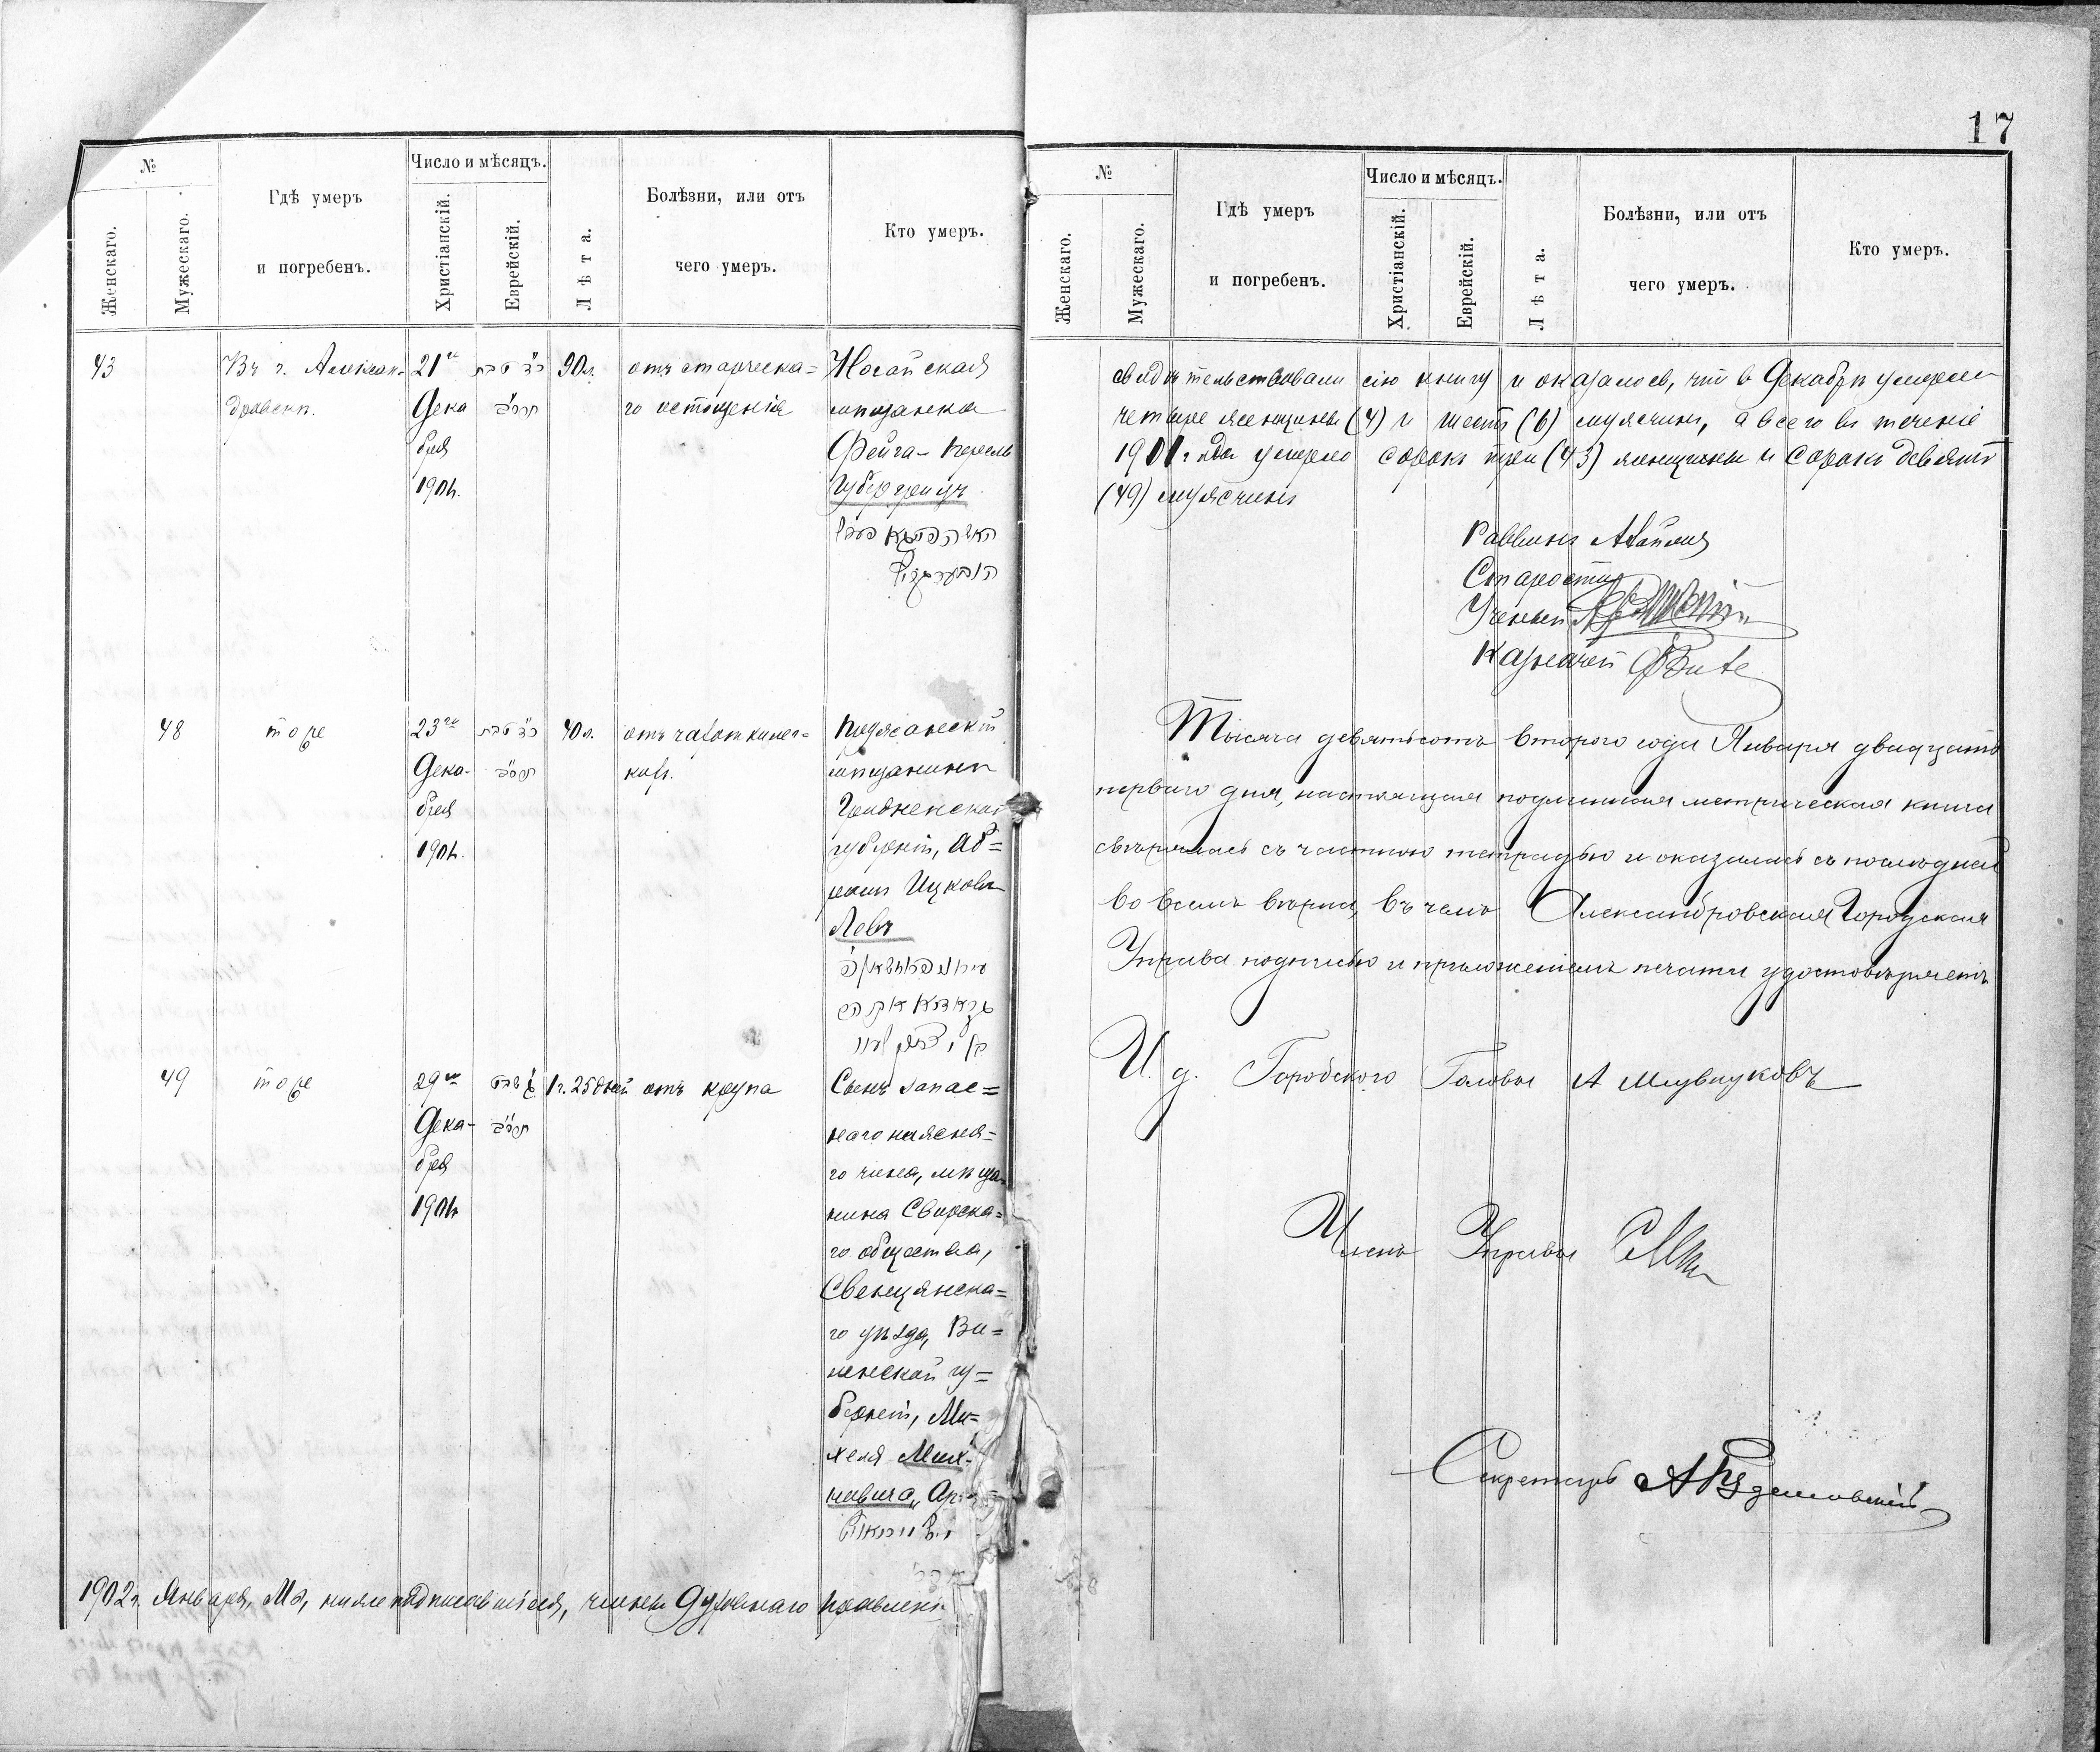 17
№
Женскаго.
Мужескаго.
Гдѣ умеръ
и погребенъ.
Число и мѣсяцъ.
Христіанскій.
Еврейскій.
Лѣта.
Болѣзни, или отъ
чего умеръ.
Кто умеръ.
43
Въ г. Алексан-
дровскѣ.
21го
Дека
бря
1901г.
90л.
отъ старческа=
го истощенія
Ногайская
мѣщанка
Фейга-Перель
48
тоже
23го
Дека-
бря
1901г.
40л.
отъ чахотки лег=
кихъ.
Пружанскій
мѣщанинъ
Гродненской
губерніи, Аб=
рамъ Ицковъ
Левъ
49
тоже
29го
Дека-
бря
1901г.
1г. 25дней
отъ крупа
Сынъ запас=
наго нижня=
го чина, мѣща
нина Свирска=
го общества,
Свенцянска=
го уѣзда, Ви=
ленской гу=
берніи, Ми=
хеля
1902г. Января, Мы, нижеподписавшіеся, члены Духовнаго Правленія
№
Женскаго.
Мужескаго.
Гдѣ умеръ
и погребенъ.
Число и мѣсяцъ.
Христіанскій.
Еврейскій.
Лѣта.
Болѣзни, или отъ
чего умеръ.
Кто умеръ.
свидѣтельствовали сію книгу и оказалось, что въ Декабрѣ умерли
четыре женщины (4) и шесть (6) мужчинъ, а всего въ теченіе
1901 года умерло сорокъ три (43) женщины и сорокъ девять
(49) мужчинъ
Раввинъ
Староста
Ученый
Казначей
Тысяча девятьсотъ второго года Января двадцать
перваго дня, настоящая подлинная метрическая книга
свѣрялась съ частною тетрадью и оказалась съ послѣдней
во всемъ вѣрна, въ чемъ Александровская Городская
Управа подписью и приложеніемъ печати удостовѣряетъ
И. д. Городского Головы
Членъ Управы
Секретарь